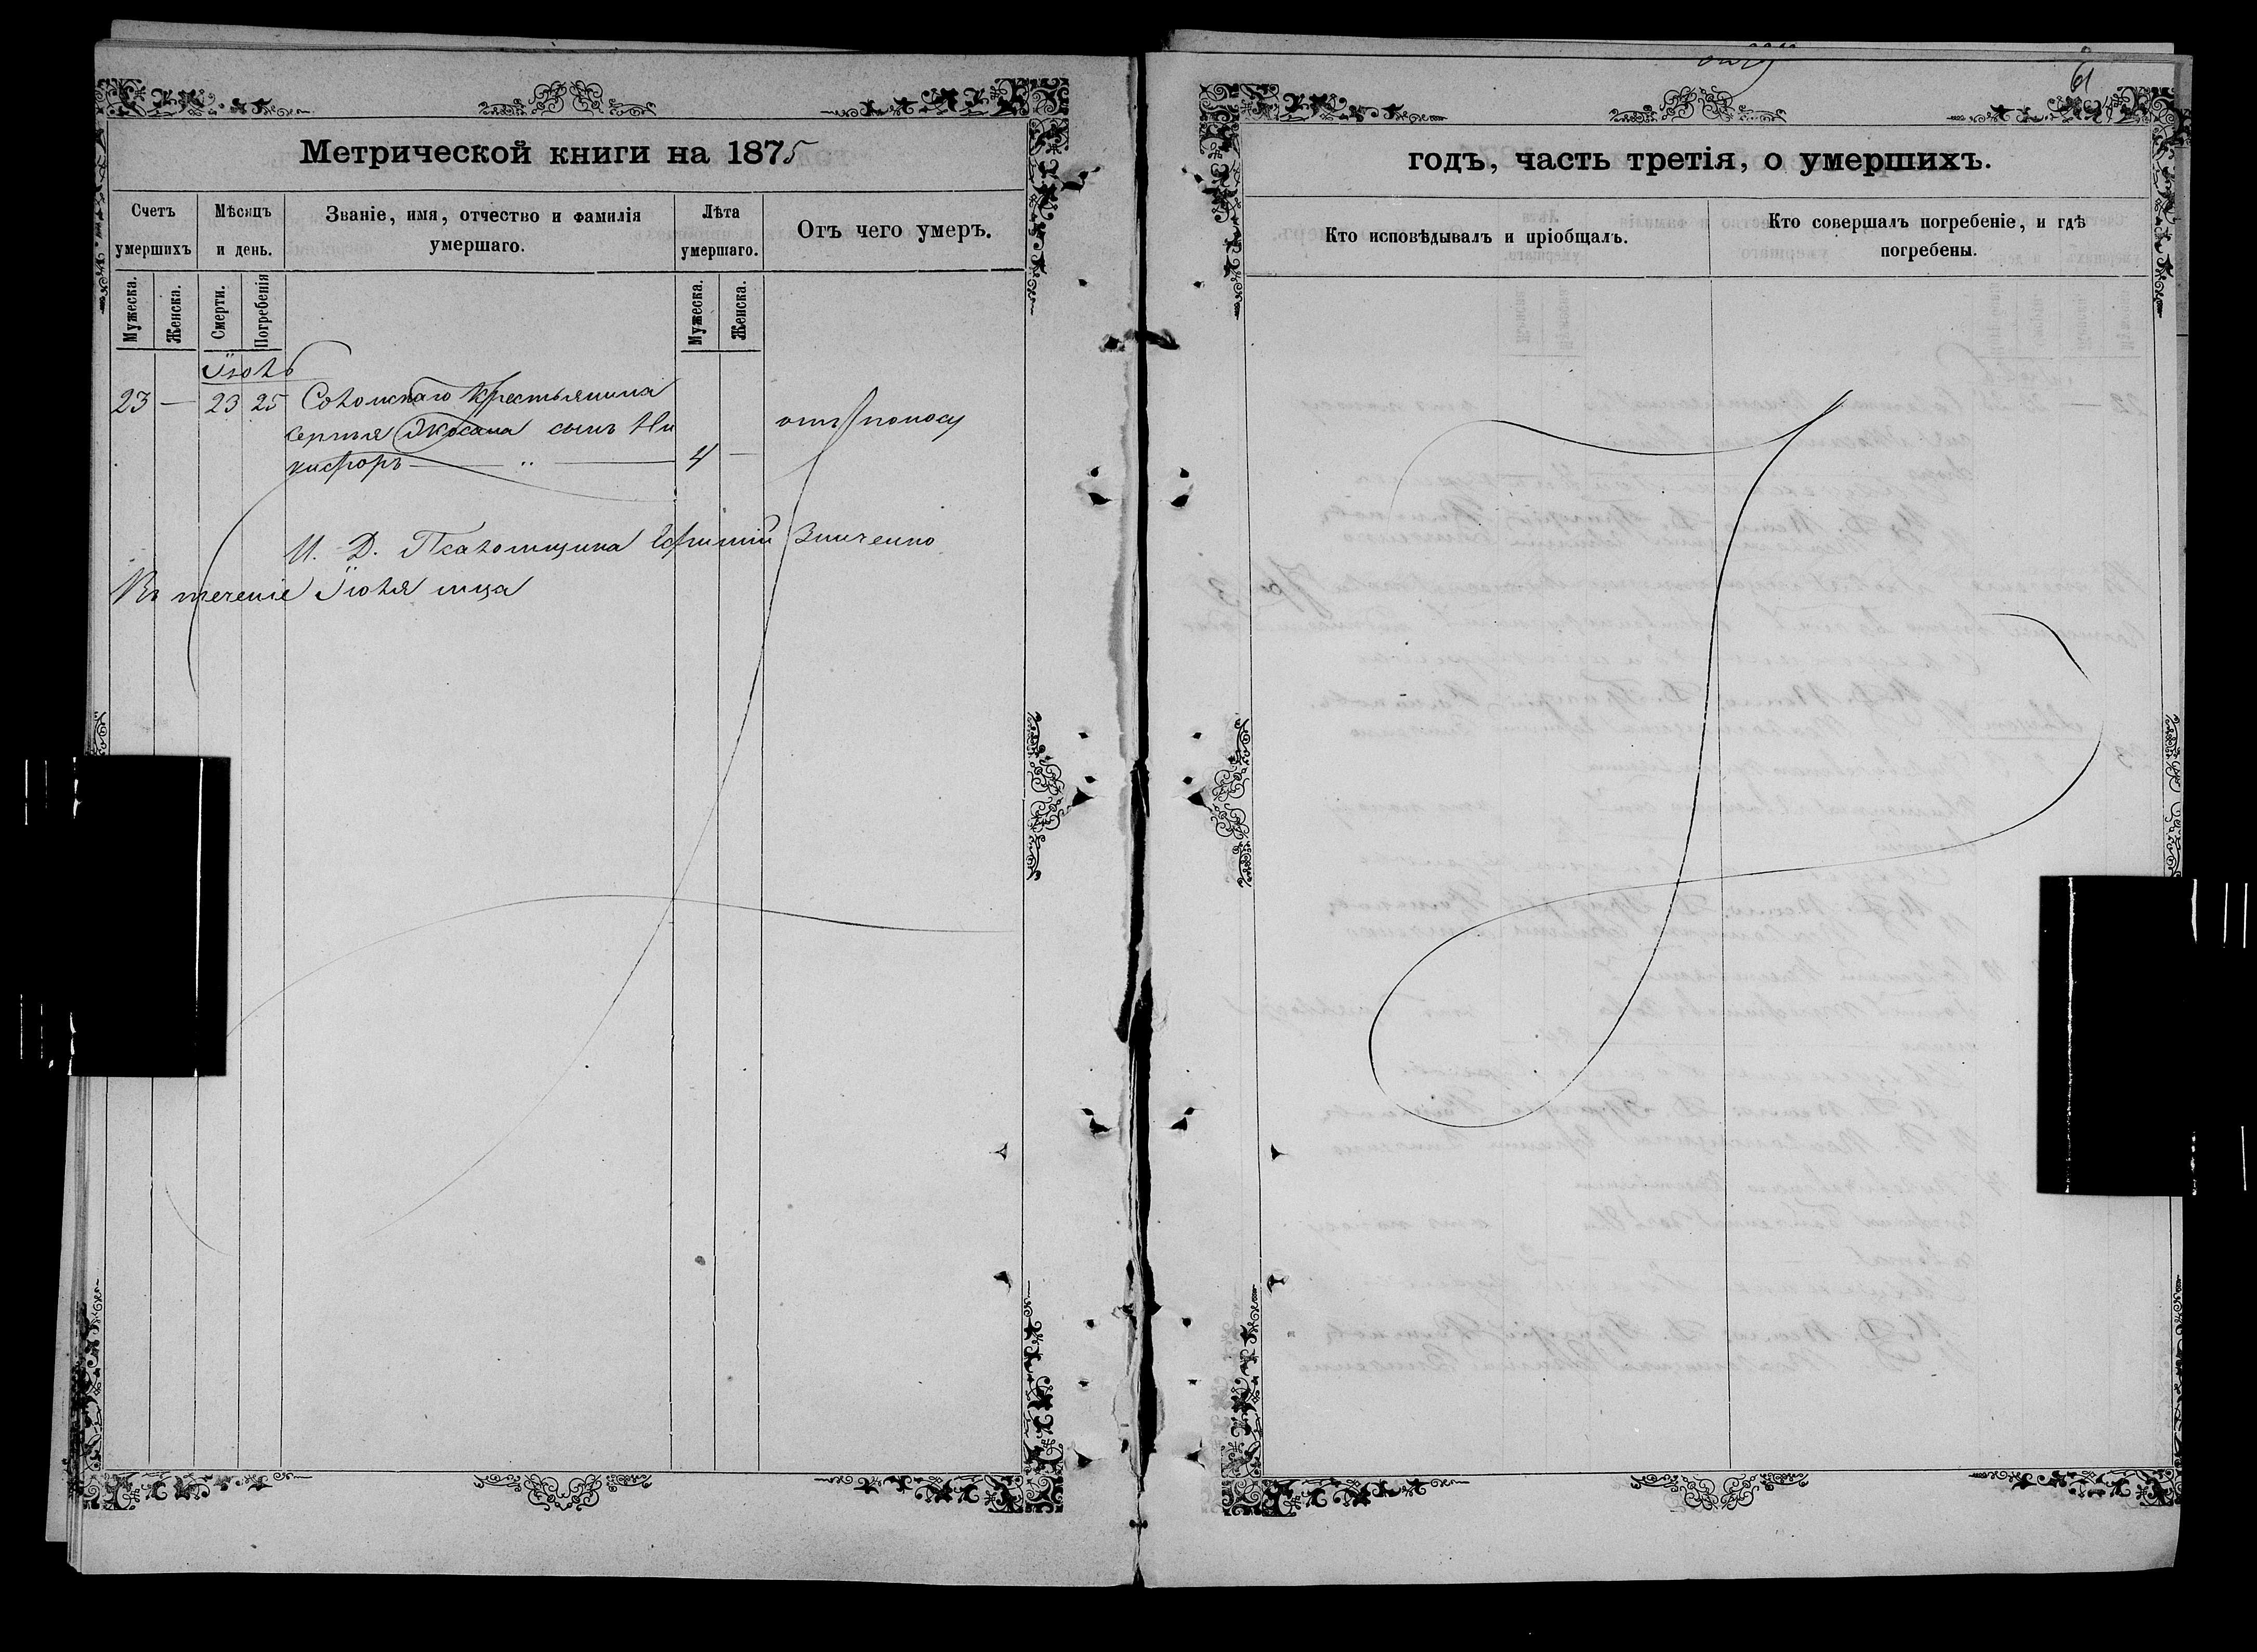 61
Метрической книги на 1875
годъ, часть третія, о умершихъ.
Счетъ умершихъ
Мѣсяцъ и день.
Званіе, имя, отчество и фамилія умершаго.
Лѣта умершаго.
Отъ чего умеръ.
Кто исповѣдывалъ и пріобщалъ.
Кто совершалъ погребеніе, и гдѣ погребены.
Мужеска.
Женска.
Смерти.
Погребенія
Мужеска.
Женска.
Іюль
23 — 23 25 Крестьянина
Сергѣя сынъ Ни
кифоръ — „ — 4 — отъ поносу
И. Д. Псаломщика Зинченко
Въ теченіе Іюля мца